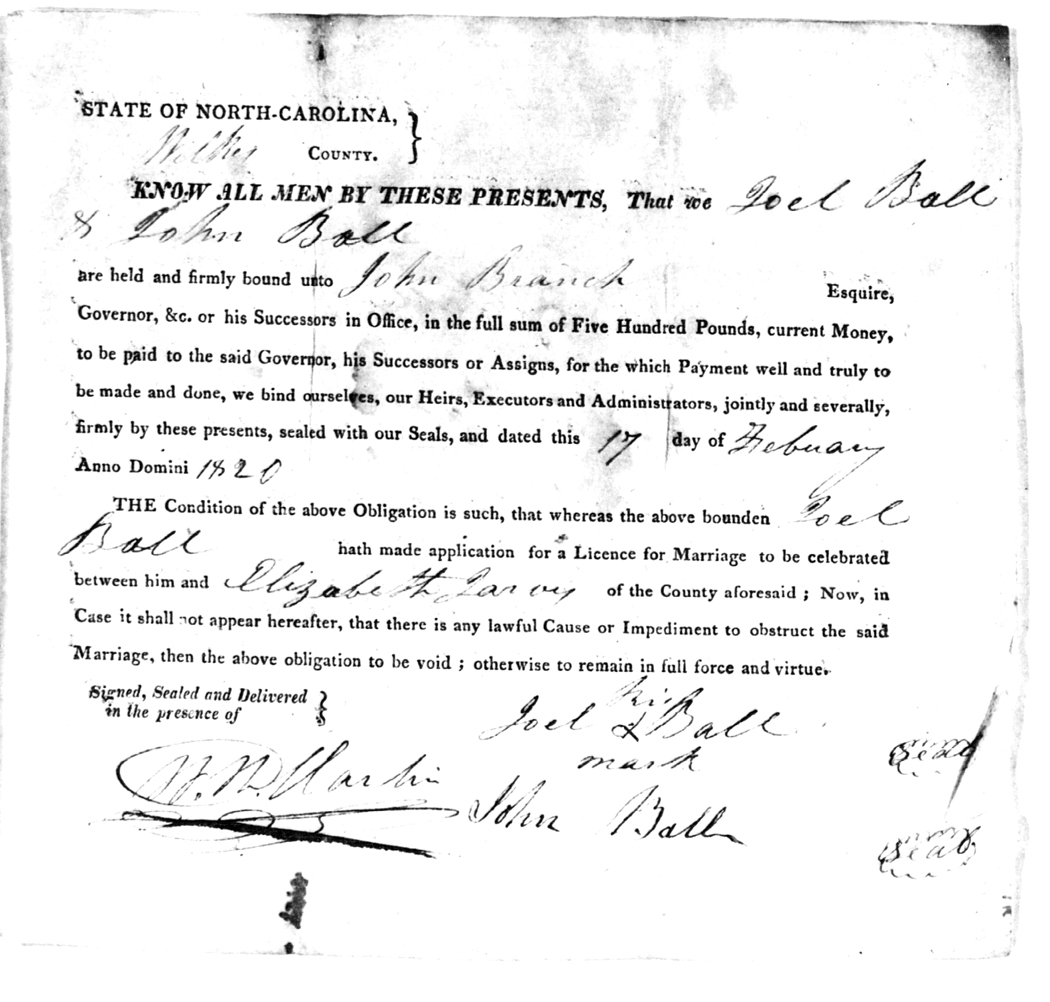 STATE OF NORTH-CAROLINA, }
Wilkes COUNTY.
KNOW ALL MEN BY THESE PRESENTS, That we Joel Ball
& John Ball
are held and firmly bound unto John Branch Esquire,
Governor, &c. or his Successors in Office, in the full sum of Five Hundred Pounds, current Money,
to be paid to the said Governor, his Successors or Assigns, for the which Payment well and truly to
be made and done, we bind ourselves, our Heirs, Executors and Administrators, jointly and severally,
firmly by these presents, sealed with our Seals, and dated this 17 day of Febuary
Anno Domini 1820
THE Condition of the above Obligation is such, that whereas the above bounden Joel
Ball hath made application for a Licence for Marriage to be celebrated
between him and Elizabeth Jarvis of the County aforesaid ; Now, in
Case it shall not appear hereafter, that there is any lawful Cause or Impediment to obstruct the said
Marriage, then the above obligation to be void ; otherwise to remain in full force and virtue.
Signed, Sealed and Delivered }
in the presence of
his
Joel X Ball seal
mark
Martin
John Ball seal